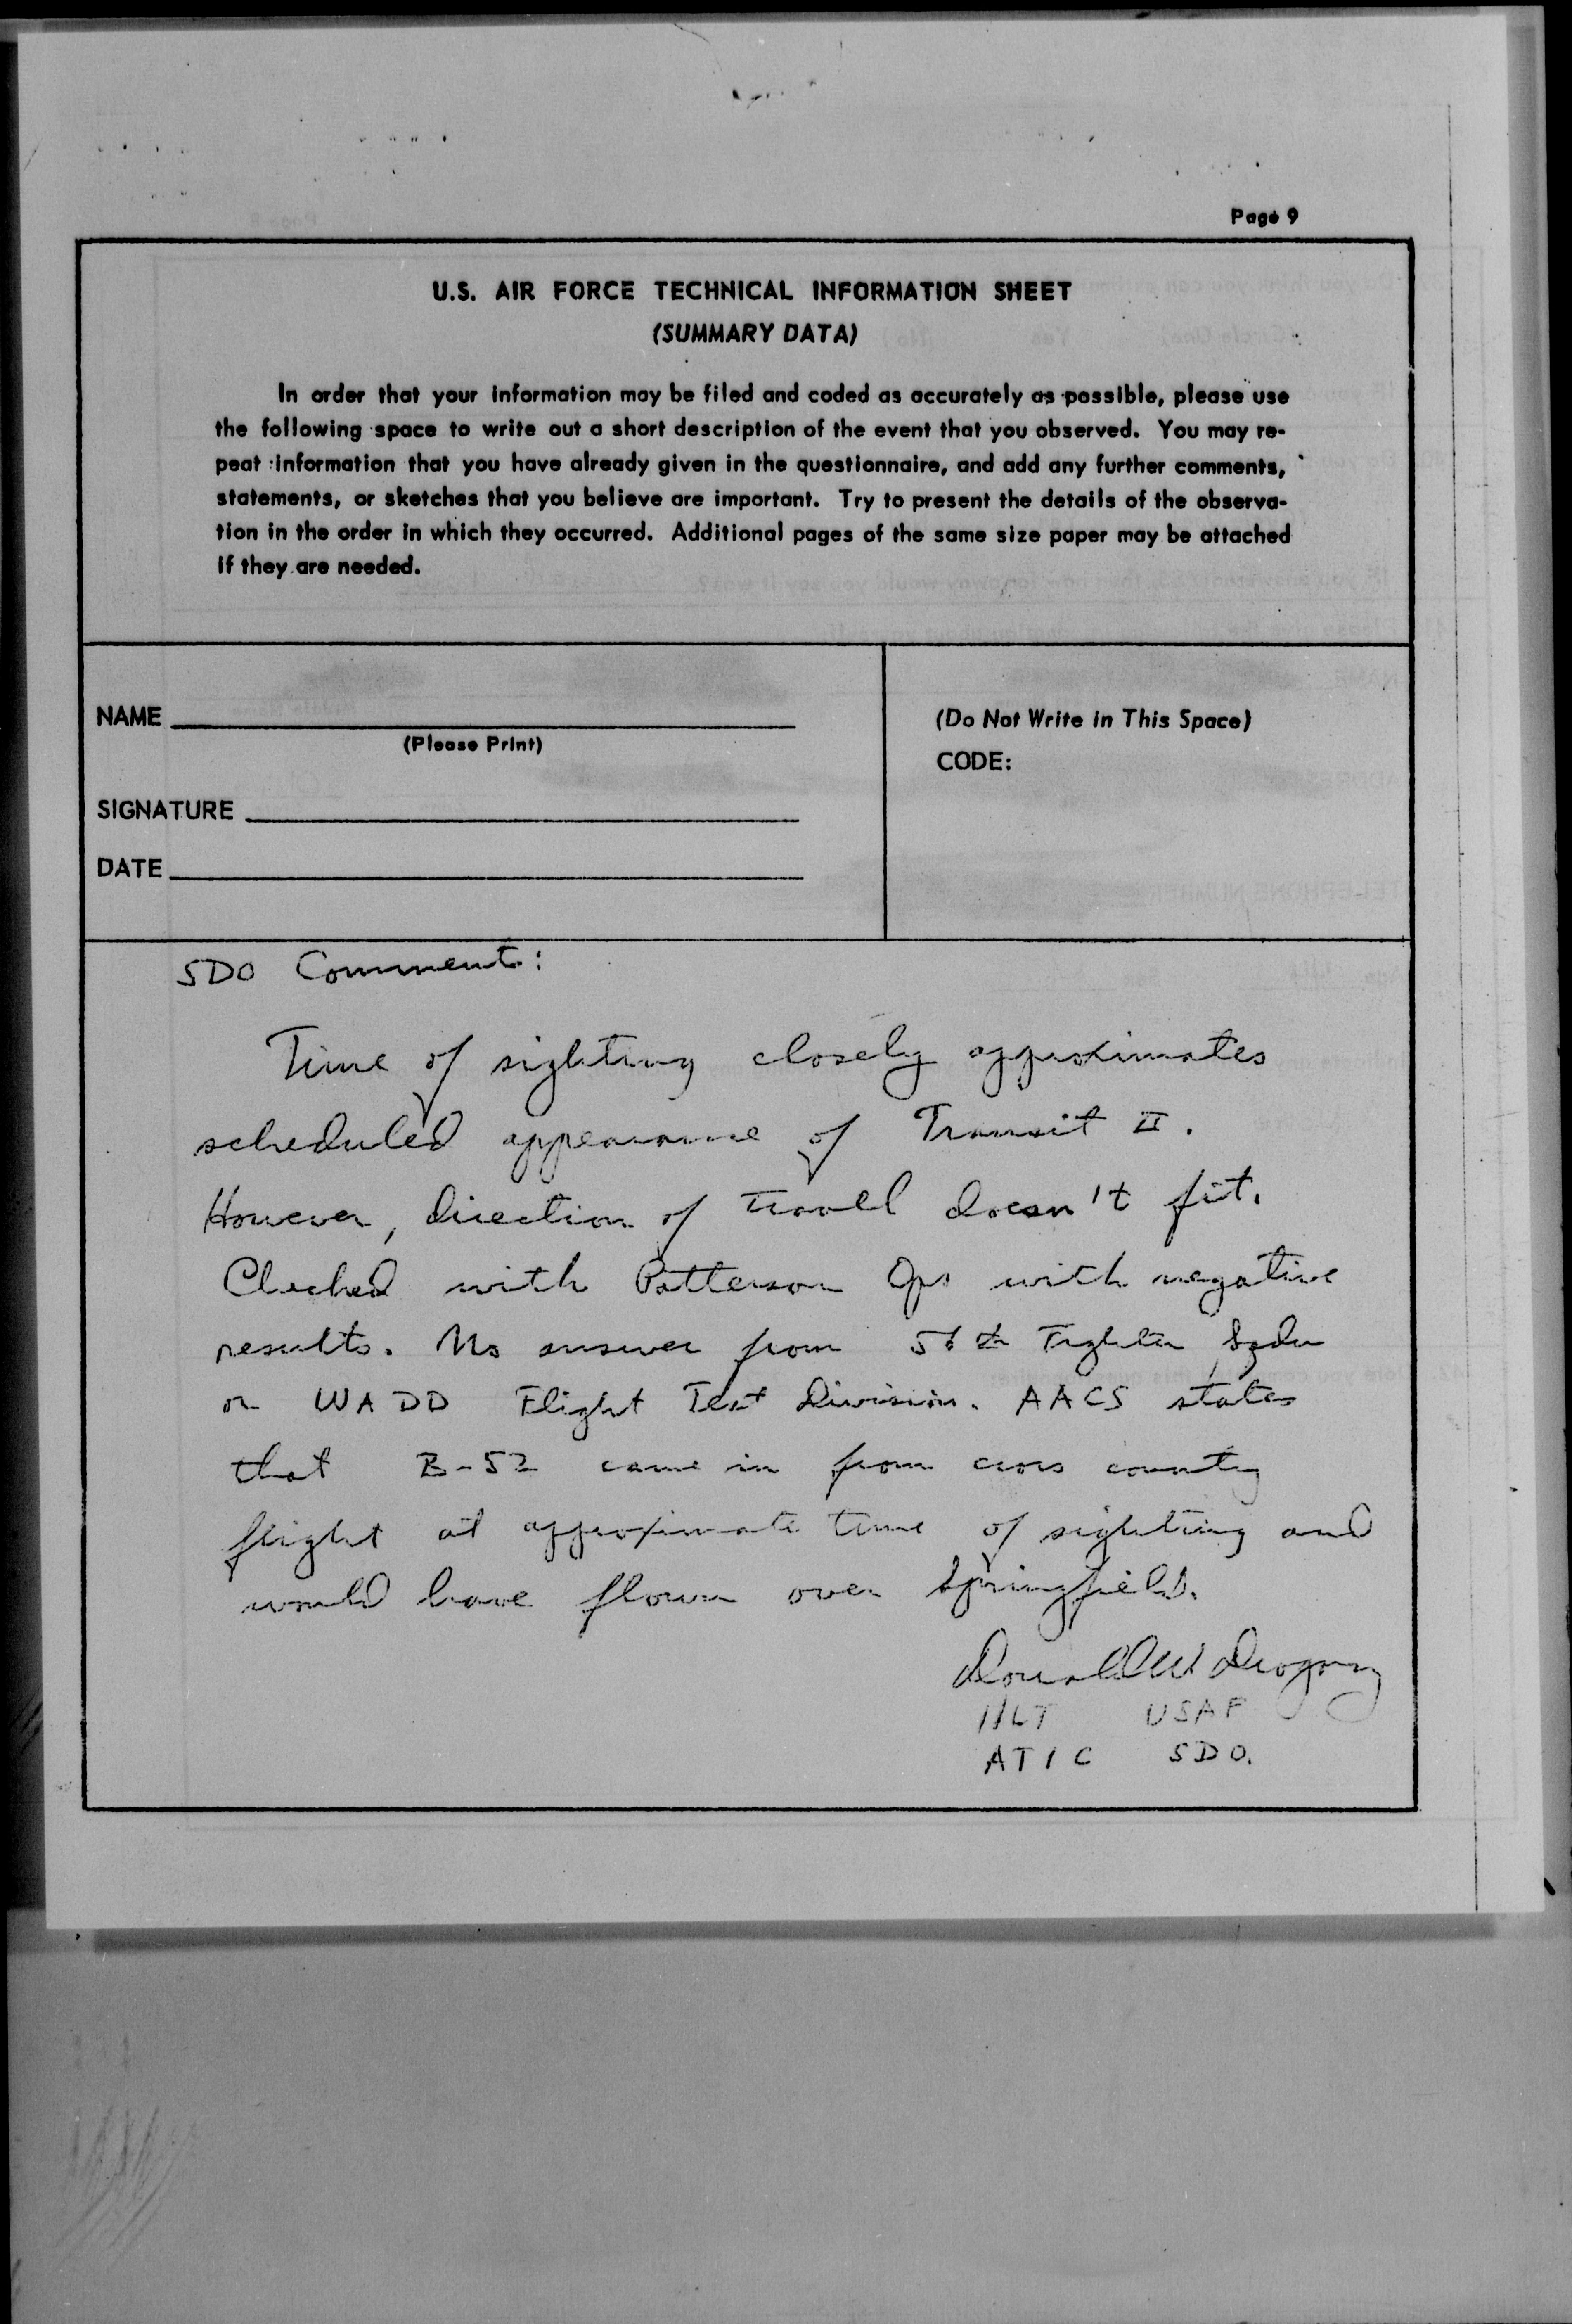 Page 9
U.S. AIR FORCE TECHNICAL INFORMATION SHEET
(SUMMARY DATA)
In order that your information may be filed and coded as accurately as possible, please use
the following space to write out a short description of the event that you observed. You may re-
peat information that you have already given in the questionnaire, and add any further comments,
statements, or sketches that you believe are important. Try to present the details of the observa-
tion in the order in which they occurred. Additional pages of the same size paper may be attached
if they are needed.
NAME
(Please Print)
SIGNATURE
DATE
(Do Not Write in This Space)
CODE:
SDO Comments:
Time of sighting closely approximates
scheduled appearance of Transit II.
However, direction of travel doesn't fit.
Checked with Patterson Ops with negative
results. No answer from 56th Fighter Sqdn
or WADD Flight Test Division. AACS states
that B-52 came in from cross country
flight at approximate time of sighting and
would have flown over Springfield.
Donald W
1/LT USAF
ATIC SDO.